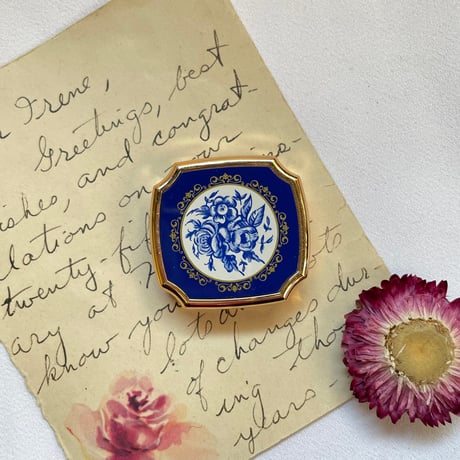 Irene,
Greetings, best
ishes, and congrat-
lations on your
twenty-fif
ary at
know you
lots
of changes dur-
ing tho
years-